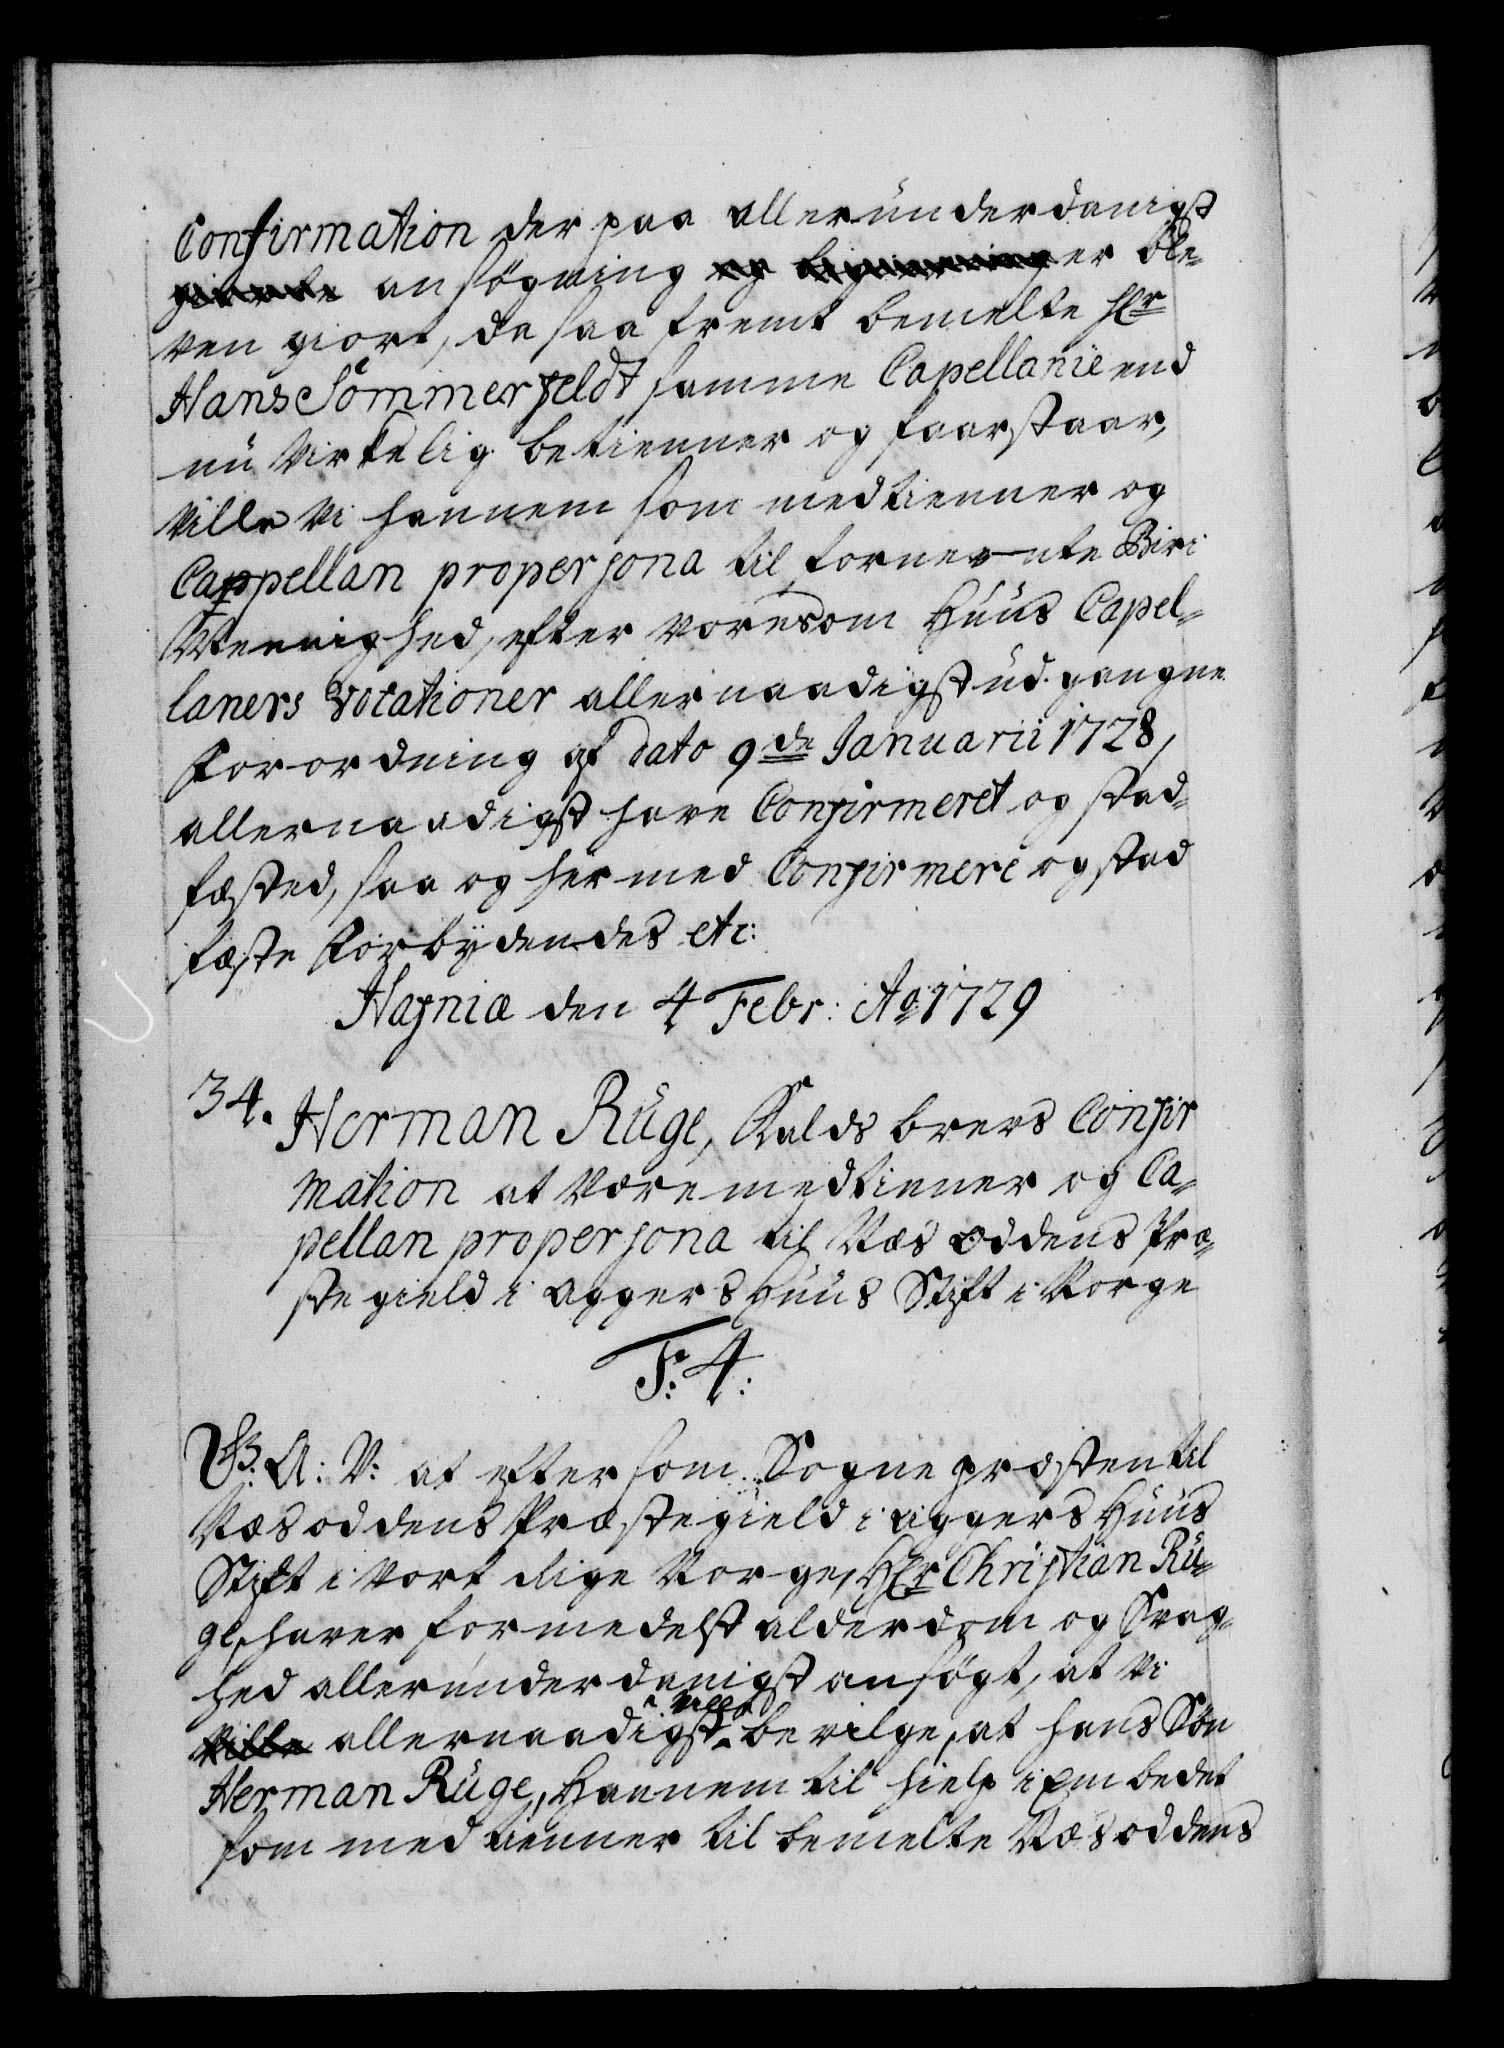 Confirmation der paa allerunderdanigst
ansøgning er ble-
ven giort, da saa fremt bemelte Hr
Hans Sommerfeldt samme Capellanie end
nu Virkelig betienner og faarstaar,
Ville Vi hannem som medtienner og
Cappellan propersona til fornevnte Biri
Mennighed, efter vores om Huus Capel-
laners Vocationer allernaadigst udgangne
Forordning af dato 9de Januarii 1728,
allernaadigst have Confirmeret og stad-
fæsted, saa og hermed Confirmere og stad
fæste Forbydendes etc:
Hafniæ den 4 Febr: Ao 1729
34. Herman Ruge, Kalds brevs Confir
mation at være medtienner og Ca-
pellan propersona til Næs oddens Præ-
stegield i Aggers Huus Stift i Norge
F: 4:
G: A: V: at eftersom Sognepræsten til
Næsoddens Præstegield i Aggers Huus
Stift i Vort Rige Norge, Hr Christian Ru-
ge, haver formedelst alderdom og Svag-
hed allerunderdanigst ansøgt, at Vi
ville
Ville allernaadigst bevilge, at hans Søn
Herman Ruge, Hannem til hielp i Embedet
som medtienner til bemelte Næsoddens